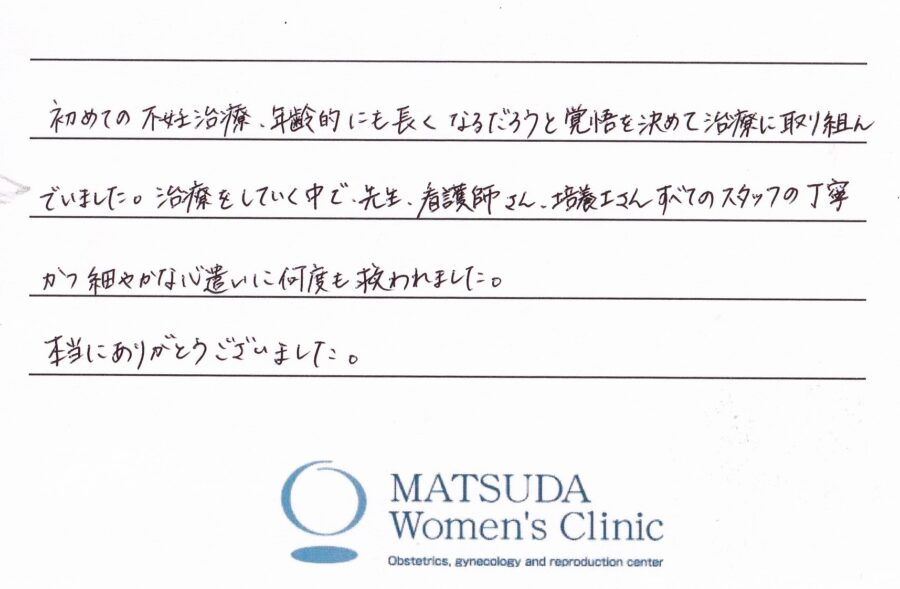 初めての不妊治療、年齢的にも長くなるだろうと覚悟を決めて治療に取り組ん
でいました。治療をしていく中で、先生、看護師さん、培養士さんすべてのスタッフの丁寧
かつ細やかな心遣いに何度も救われました。
本当にありがとうございました。
MATSUDA
Women's Clinic
Obstetrics, gynecology and reproduction center